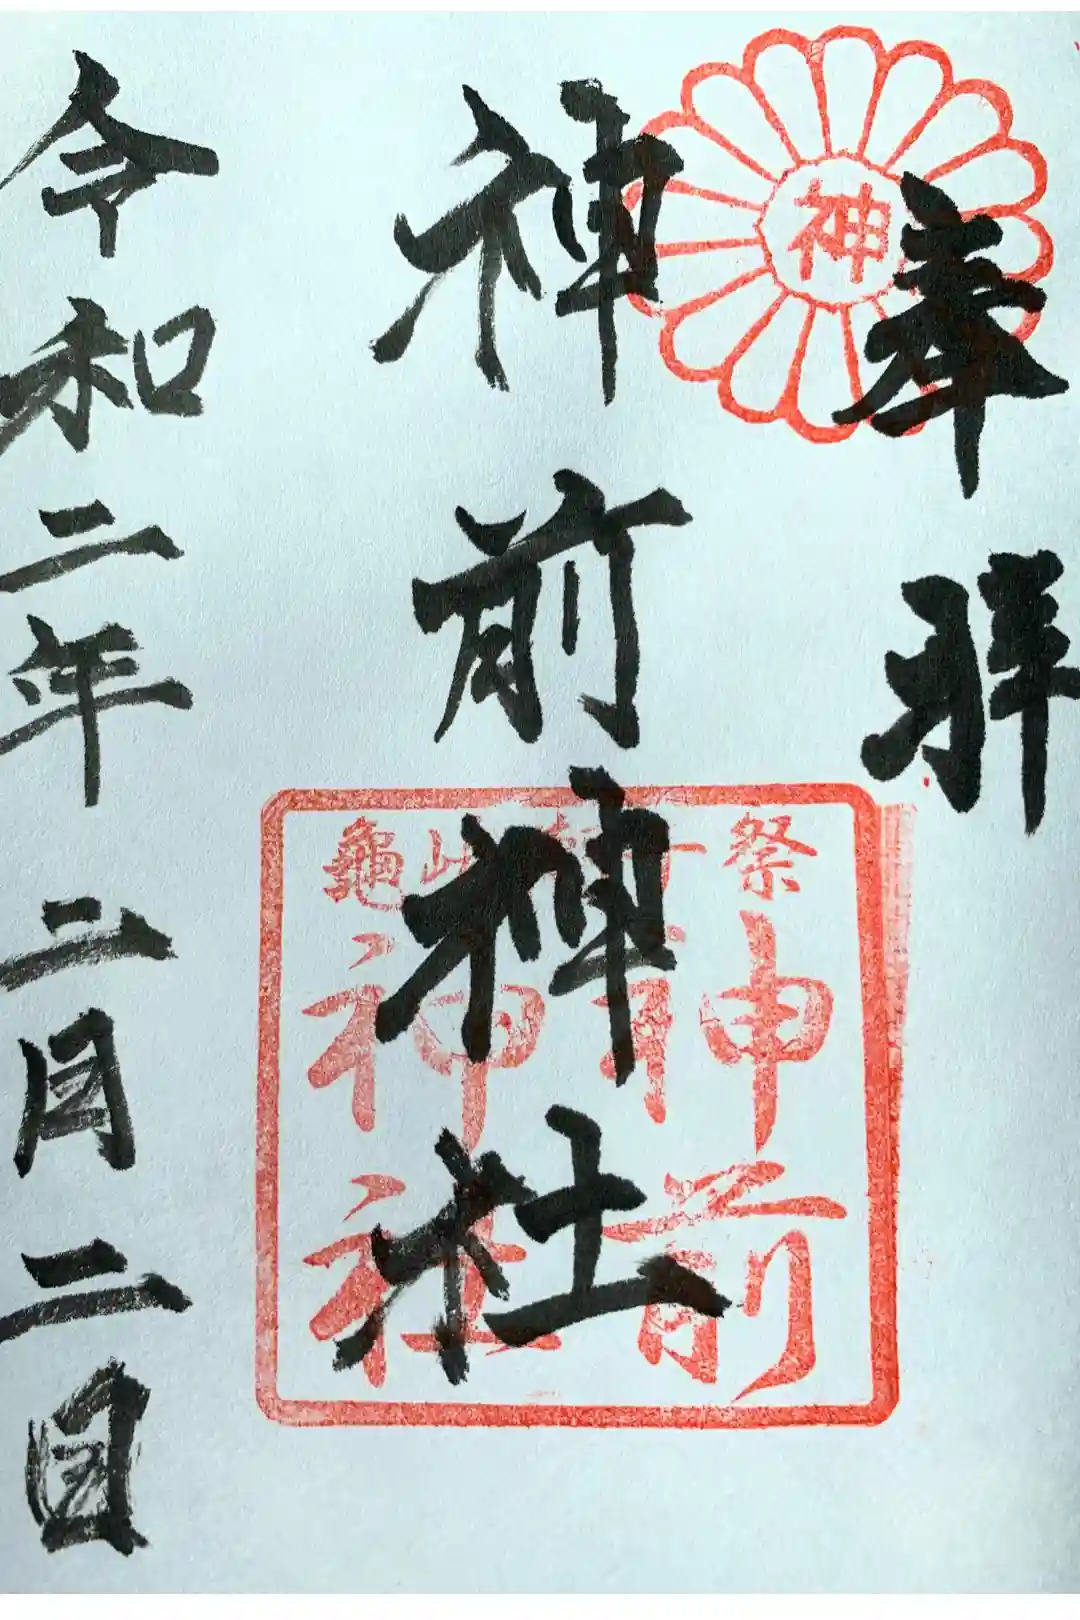 奉拝
神
神前神社
祭
神前
神社
令和二年二月二日